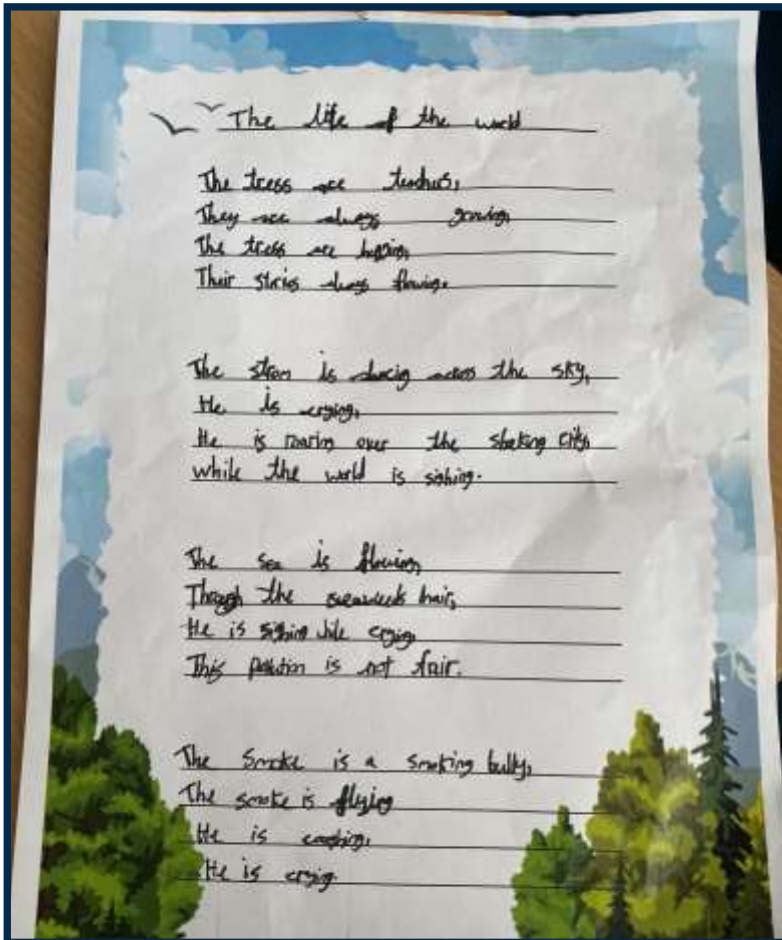 The life of the world
The tress are teachers,
They are always growing,
The tress are
Their stories always flowing.
The strom is dancig across the sky,
He is crying,
He is roarin over the shaking city,
while the world is sighing.
The sea is flowing,
Through the seaweeds hair,
He is sighing while crying,
This polution is not fair.
The Smoke is a smoking bully,
The smoke is flying
He is
He is crying.